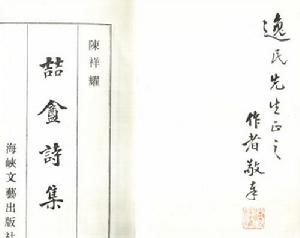 逸民先生正之
作者敬奉
陳祥耀
喆盦詩集
海峽文藝出版社